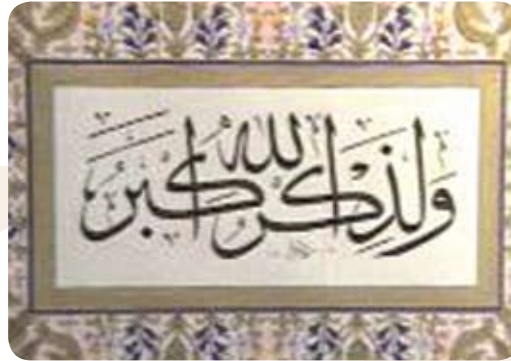 ولذكر الله اكبر